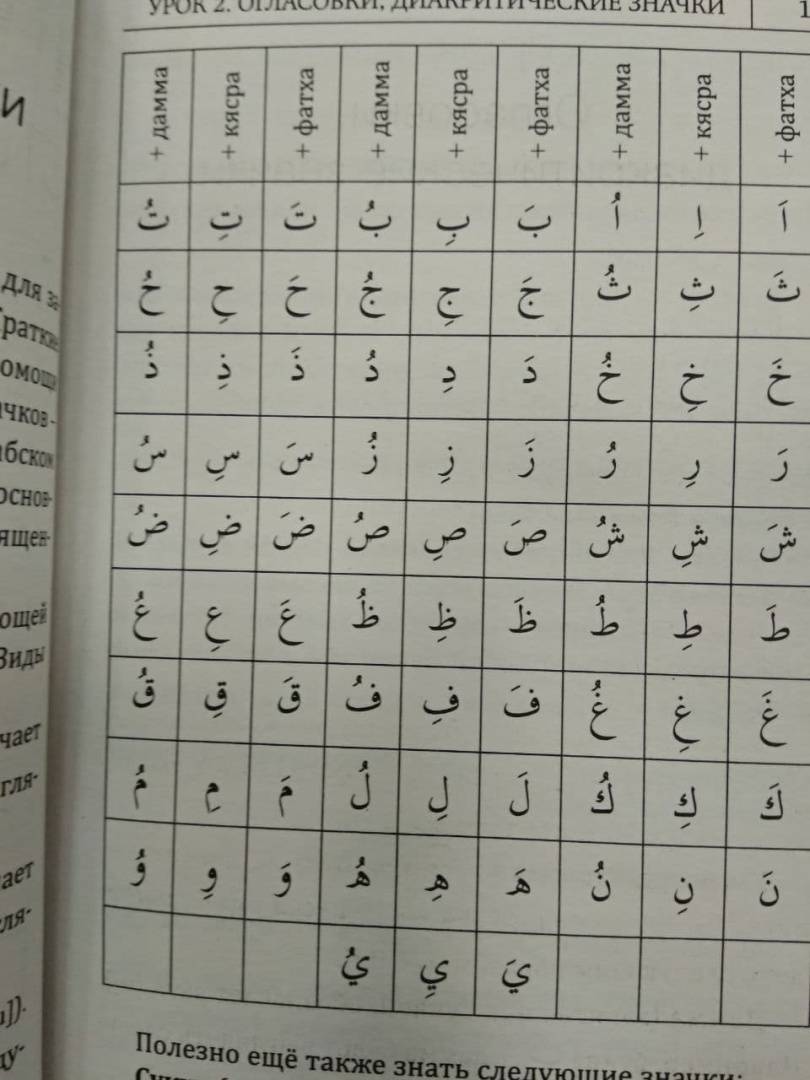 И
для
омощи
ачков-
абском
основ-
ящен-
ощей
Виды
чает
гля-
ает
УРОК 2. ОГЛАСОВКИ, ДИАКРИТИЧЕСКИЕ ЗНАЧКИ 1
+ фатха + кясра + дамма + фатха + кясра + дамма + фатха + кясра + дамма
اَ اِ اُ بَ بِ بُ تَ تِ تُ
ثَ ثِ ثُ جَ جِ جُ حَ حِ حُ
خَ خِ خُ دَ دِ دُ ذَ ذِ ذُ
رَ رِ رُ زَ زِ زُ سَ سِ سُ
شَ شِ شُ صَ صِ صُ ضَ ضِ ضُ
طَ طِ طُ ظَ ظِ ظُ عَ عِ عُ
غَ غِ غُ فَ فِ فُ قَ قِ قُ
كَ كِ كُ لَ لِ لُ مَ مِ مُ
نَ نِ نُ هَ هِ هُ وَ وِ وُ
يَ يِ يُ
Полезно ещё также знать следующие значки: